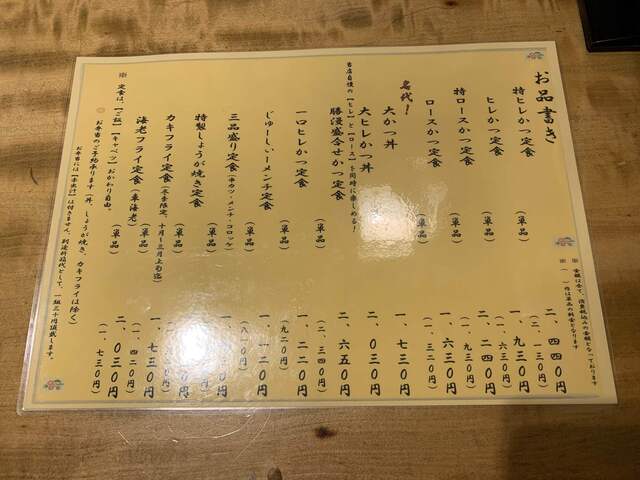 お品書き
※ 金額は全て、消費税込みの金額となっております
※（ ）内は単品の料金となります
特ヒレかつ定食 二、四四〇円
（単品）（二、一三〇円）
ヒレかつ定食 二、二四〇円
（単品）（一、九三〇円）
特ロースかつ定食 一、九三〇円
（単品）（一、六三〇円）
ロースかつ定食 一、六三〇円
（単品）（一、三二〇円）
名代！
大かつ丼 一、七三〇円
大ヒレかつ丼 二、〇三〇円
当店自慢の【ヒレ】と【ロース】を同時に楽しめる！
勝漫盛合せかつ定食 二、六五〇円
（単品）（二、三四〇円）
一口ヒレかつ定食 一、二二〇円
（単品）（九二〇円）
じゅーしぃーメンチ定食 一、一二〇円
（単品）（八一〇円）
三品盛り定食（串カツ・メンチ・コロッケ）
（単品）
特製しょうが焼き定食
（単品）
カキフライ定食（冬季限定、十月～三月上旬迄） 一、七三〇円
（単品）
海老フライ定食（車海老） 二、〇三〇円
（単品）（一、七三〇円）
※ 定食は、【ご飯】【キャベツ】おかわり自由。
お弁当のご予約承ります（丼、しょうが焼き、カキフライは除く）
お弁当には【赤出汁】は付きません。別途折箱代として、一組三十円頂戴します。